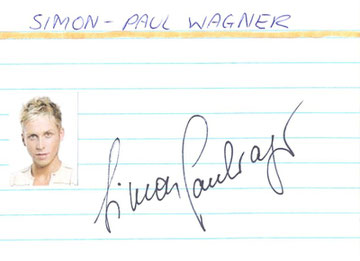 SIMON-PAUL WAGNER
Simon Paul Wagner